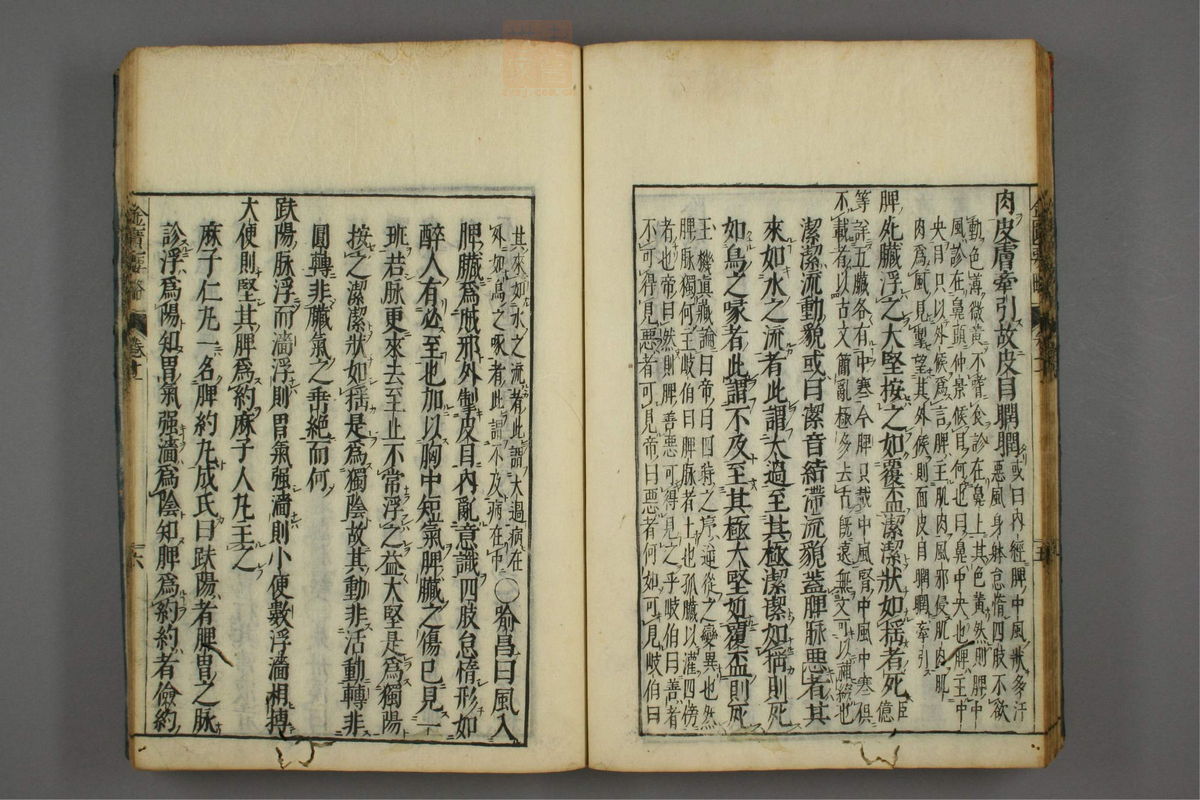 肉皮膚牽引故皮目瞤瞤或曰内經脾中風狀多汗
惡風身躰怠惰四肢不欲
動色薄微黃不嗜食診在鼻上其色黄然則脾中
風診在鼻頭仲景候目何也曰鼻中央也脾主中
央目只以外候爲言脾主肌肉風邪侵肌肉肌
肉爲風見掣望其外候則面皮目瞤瞤牽引
脾死臟浮之大堅按之如覆盃潔潔狀如揺者死臣億
等詳五臟各有中寒今脾只載中風腎中風中寒俱
不載者以古文簡亂極多去古旣遠無文可以補綴也
潔潔流動貌或曰潔音結滯流貌蓋脾脉惡者其
來如水之流者此謂太過至其極潔潔如揺則死
如鳥之喙者此謂不及至其極大堅如覆盃則死
玉機眞藏論曰帝曰四時之序逆從之變異也然
脾脉獨何主岐伯曰脾脉者土也孤臟以灌四傍
者也帝曰然則脾善惡可得見之乎岐伯曰善者
不可得見惡者可見帝曰惡者何如可見岐伯曰
其來如水之流者此謂太過病在
外如鳥之喙者此謂不及病在中〇喻昌曰風入
脾臟爲賊邪外掣皮目内亂意識四肢怠惰形如
醉人有必至也加以胸中短氣脾臟之傷已見一
班若脉更來去至止不常浮之益大堅是爲獨陽
按之潔潔狀如揺是爲獨陰故其動非活動轉非
圓轉非臟氣之乖絶而何
趺陽脉浮而濇浮則胃氣强濇則小便數浮濇相搏
大便則堅其脾爲約麻子人丸主之
麻子仁丸一名脾約丸成氏曰趺陽者脾胃之脉
診浮爲陽知胃氣强濇爲陰知脾爲約約者儉約